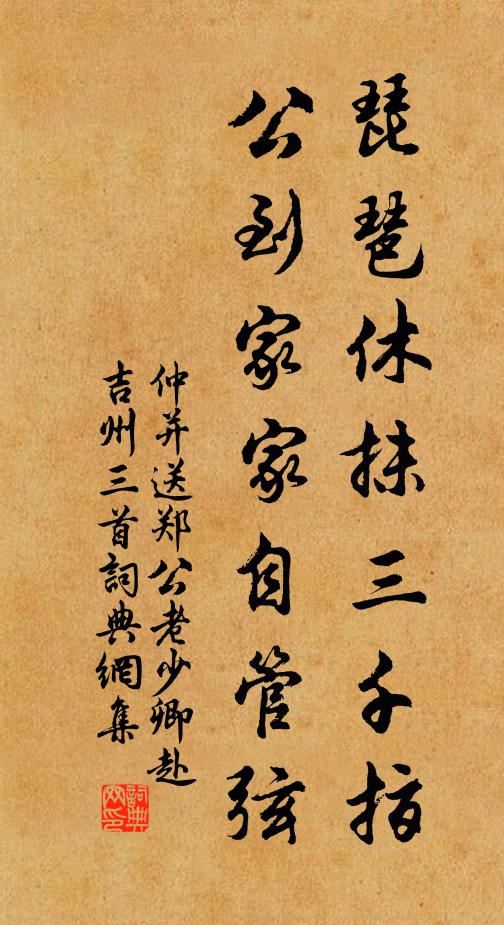 琵琶休抹三千指
公到家家自管弦
仲并送郑公老少卿赴
吉州三首詞典網集